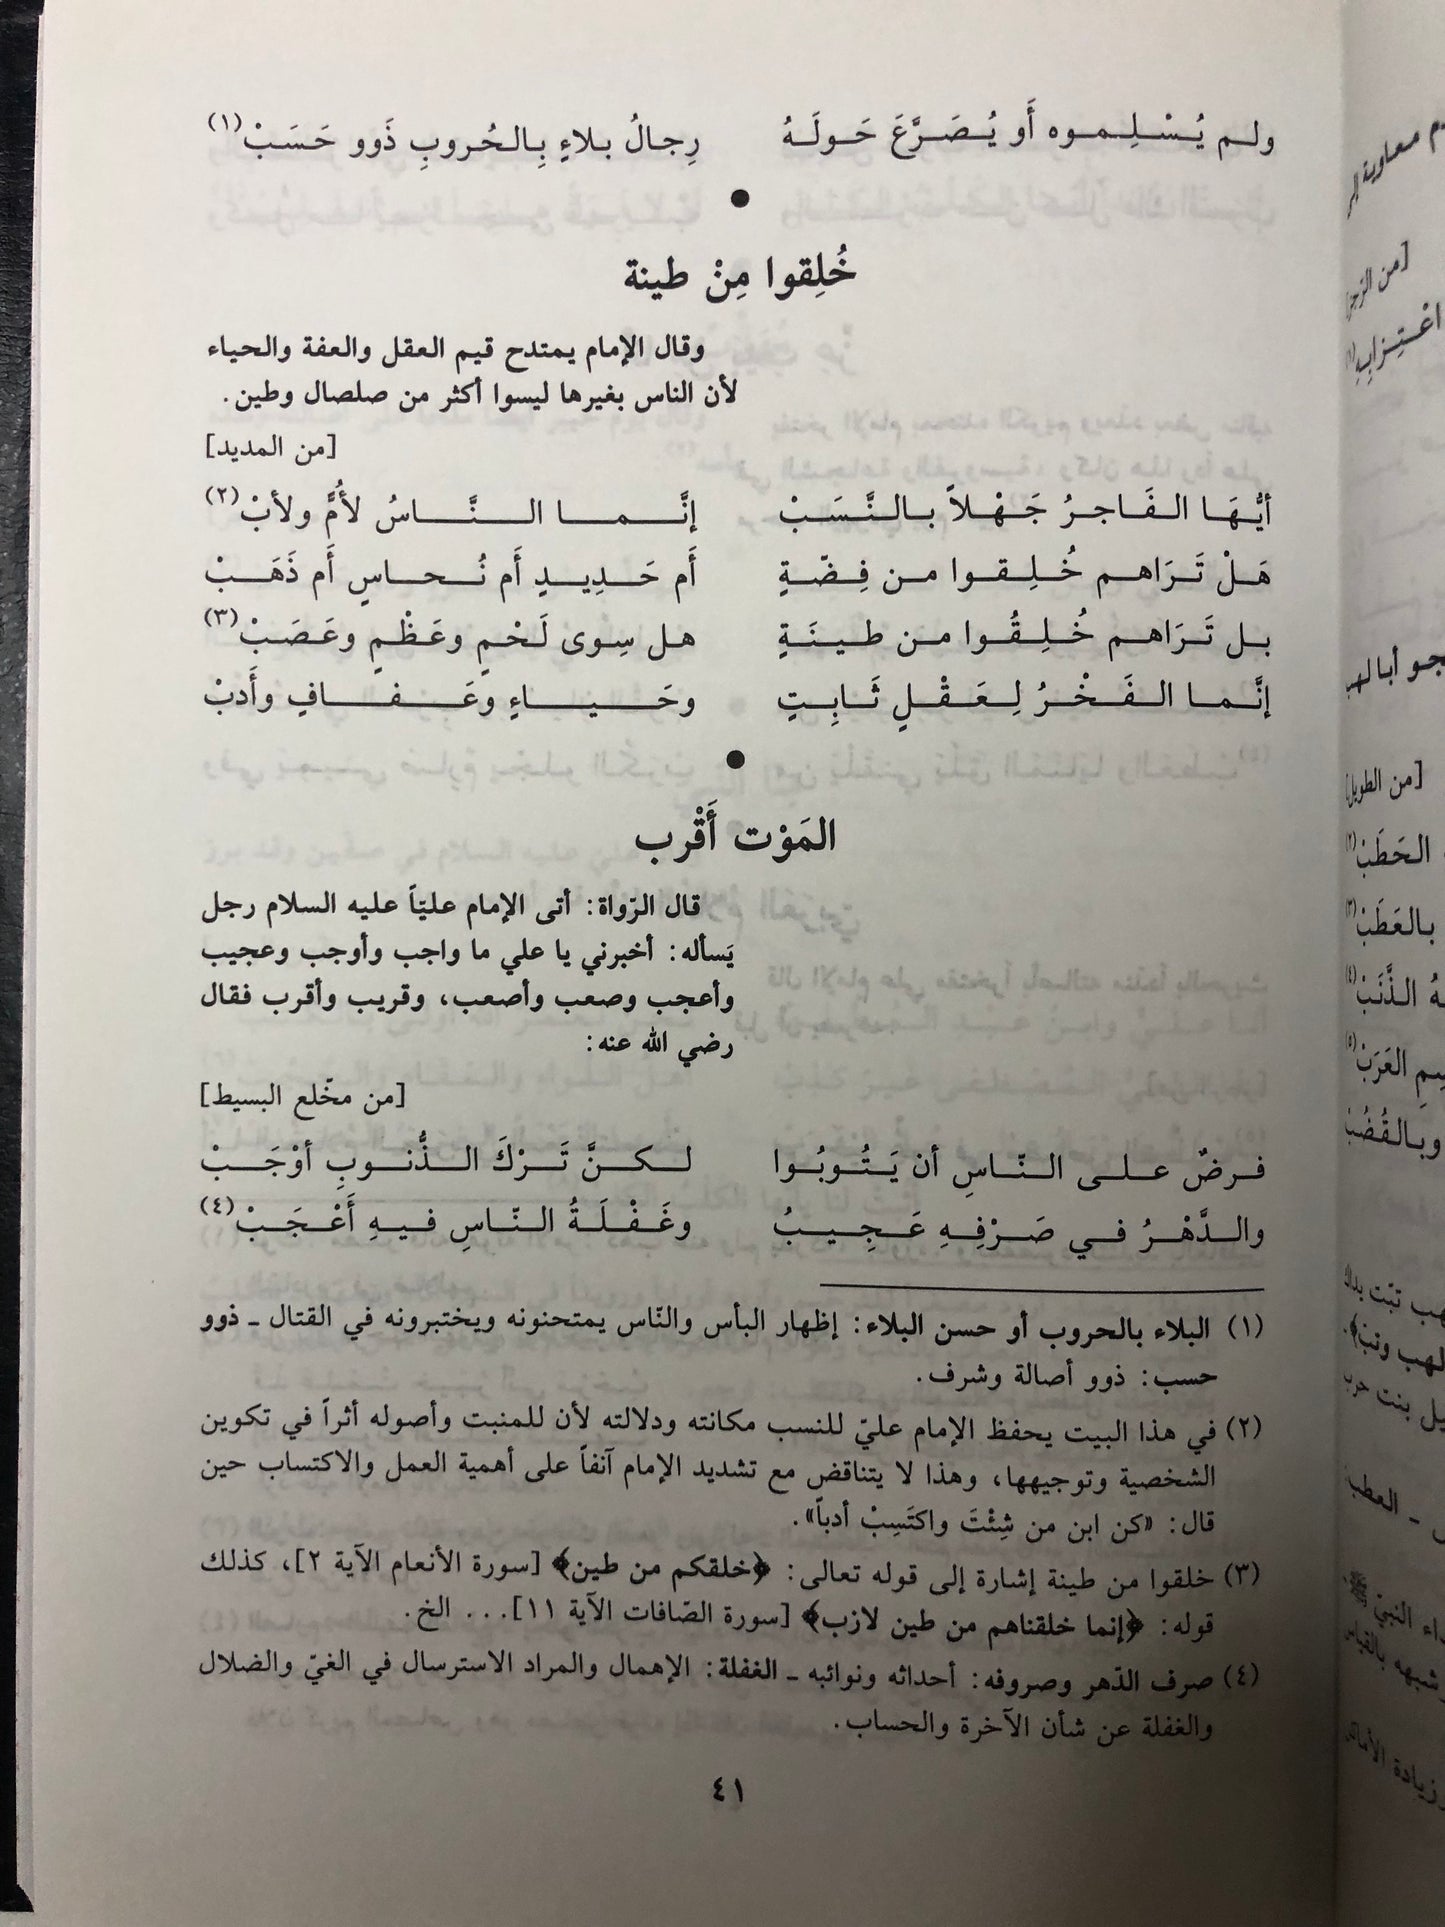 ولـم يُـسْـلِـمـوه أَو يُـصَـرَّعَ حَـولَـهُ رِجـالُ بـلاءٍ بِـالـحُـروبِ ذَوو حَـسَـبْ(١)
خُلِقوا مِنْ طينة
وقال الإمام يمتدح قيم العقل والعفة والحياء
لأن الناس بغيرها ليسوا أكثر من صلصال وطين.
[من المديد]
أيُّـهَـا الـفَـاجـرُ جَـهْـلاً بـالـنَّـسَـبْ إنَّـمـا الـنَّـاسُ لأُمٍّ ولأبْ(٢)
هَـلْ تَـرَاهـم خُـلِـقـوا مـن فِـضّـةٍ أَم حَـدِيـدٍ أَم نُـحـاسٍ أَم ذَهَـبْ
بـل تَـرَاهـم خُـلِـقُـوا مـن طـيـنَـةٍ هـل سِـوى لَـحْـمٍ وعَـظْـمٍ وعَـصَـبْ(٣)
إنَّـمـا الـفَـخْـرُ لِـعَـقْـلٍ ثَـابِـتٍ وحَـيـاءٍ وعَـفـافٍ وأَدبْ
المَوْت أَقْرب
قال الرّواة: أتى الإمام عليّاً عليه السلام رجل
يَسأله: أخبرني يا علي ما واجب وأوجب وعجيب
وأعجب وصعب وأصعب، وقريب وأقرب فقال
رضي الله عنه:
[من مخّلع البسيط]
فـرضٌ عـلـى الـنّـاسِ أن يَـتُـوبُـوا لـكـنَّ تَـرْكَ الـذُّنـوبِ أوْجَـبْ
والـدَّهْـرُ فـي صَـرْفِـهِ عَـجِـيـبُ وغَـفْـلَـةُ الـنّـاسِ فـيـهِ أَعْـجَـبْ(٤)
(١) البلاء بالحروب أو حسن البلاء: إظهار البأس والنّاس يمتحنونه ويختبرونه في القتال ـ ذوو
حسب: ذوو أصالة وشرف.
(٢) في هذا البيت يحفظ الإمام عليّ للنسب مكانته ودلالته لأن للمنبت وأصوله أثراً في تكوين
الشخصية وتوجيهها، وهذا لا يتناقض مع تشديد الإمام آنفاً على أهمية العمل والاكتساب حين
قال: «كن ابن من شِئْتَ واكتَسِبْ أدباً».
(٣) خلقوا من طينة إشارة إلى قوله تعالى: ﴿خلقكم من طين﴾ [سورة الأنعام الآية ٢]، كذلك
قوله: ﴿إنما خلقناهم من طين لازب﴾ [سورة الصّافات الآية ١١]... الخ.
(٤) صرف الدّهر وصروفه: أحداثه ونوائبه ـ الغفلة: الإهمال والمراد الاسترسال في الغيّ والضلال
والغفلة عن شأن الآخرة والحساب.
٤١
[من الطويل]
الـحَـطَـبْ(٢)
بـالـعَـطَـبْ(٣)
الـذَّنَـبْ(٤)
الـعَـرَبْ(٥)
وبـالـقُـضُـبْ